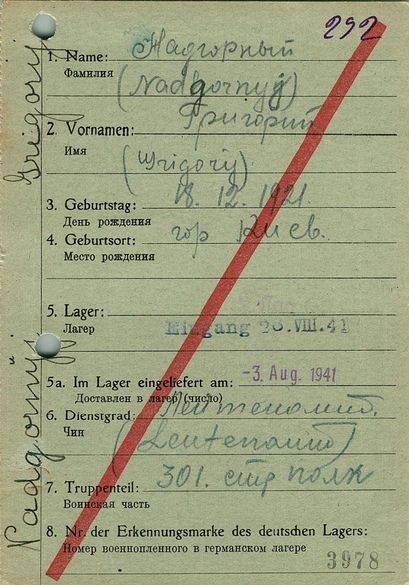 292
1. Name: Надгорный
Фамилия
(Nadgornyj)
2. Vornamen: Григорий
Имя
(Grigorij)
3. Geburtstag: 18. 12. 1921.
День рождения
4. Geburtsort: гор Киев.
Место рождения
5. Lager:
Лагерь
Eingang 20.VIII.41
5a. Im Lager eingeliefert am: -3. Aug. 1941
Доставлен в лагерь (число)
6. Dienstgrad: Лейтенант.
Чин
(Leutenant)
7. Truppenteil: 301. стр полк
Воинская часть
8. Nr. der Erkennungsmarke des deutschen Lagers:
Номер военнопленного в германском лагере
3978
Grigorij
Nadgornyj